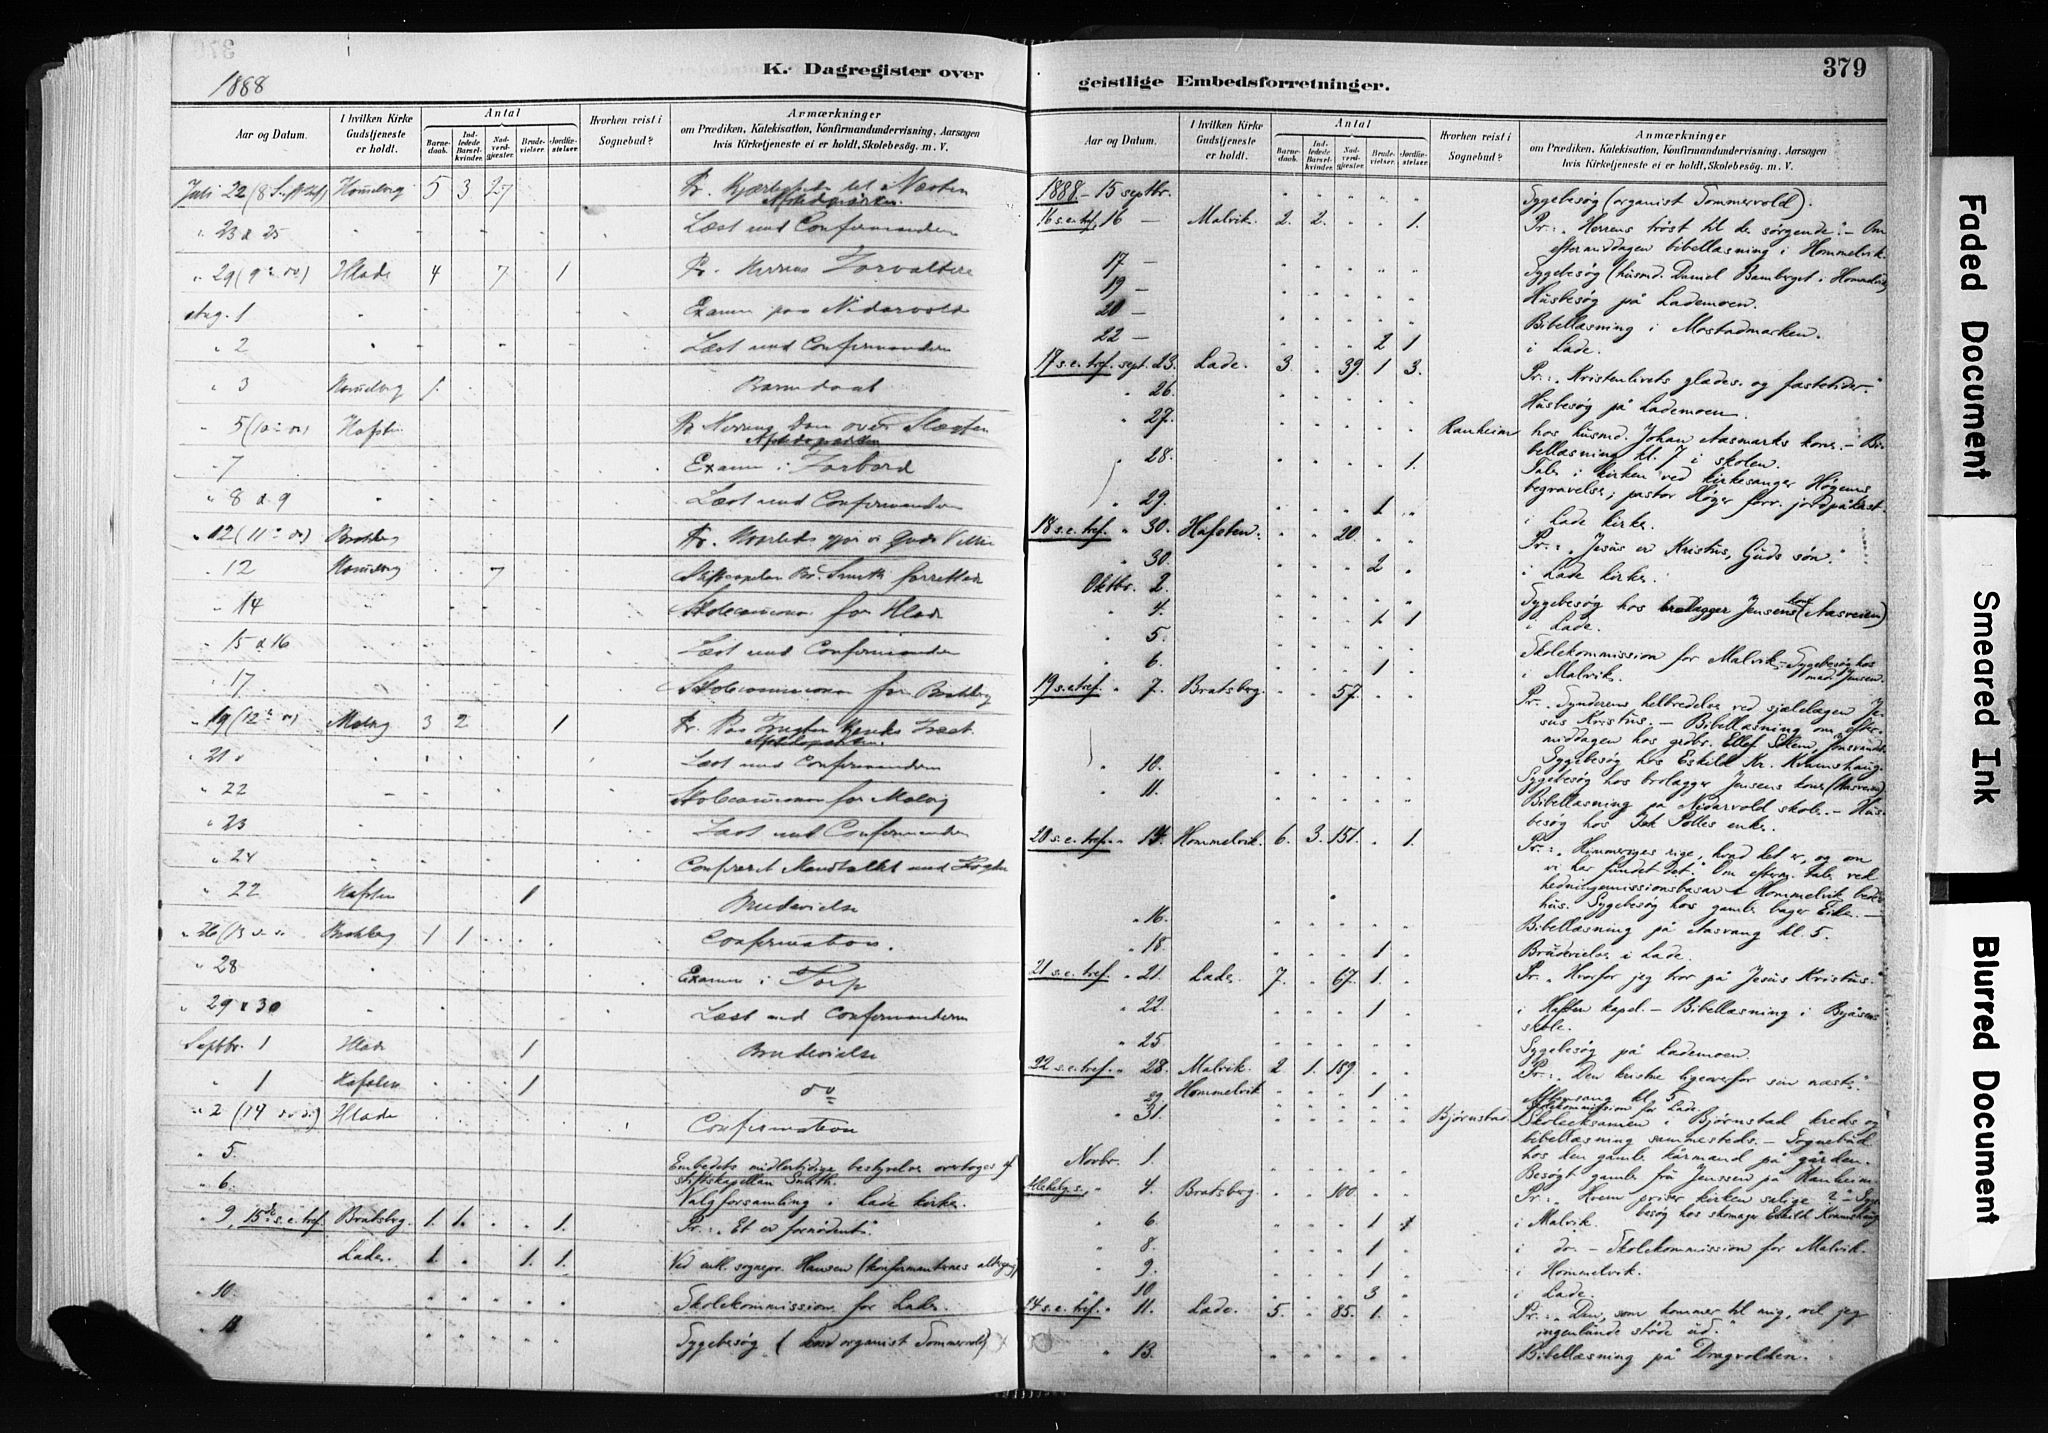 379
1888
K. Dagregister over geistlige Embedsforretninger.
Aar og Datum.
I hvilken Kirke Gudstjeneste er holdt.
Antal
Barnedaab.
Indledede Barselkvinder.
Nadverdgjester.
Brudevielser.
Jordfæstelser.
Hvorhen reist i Sognebud?
Anmærkninger
om Prædiken, Katekisation, Konfirmandundervisning, Aarsagen
hvis Kirketjeneste ei er holdt, Skolebesøg. m. V.
Juli 22 5 3 27 Pr. Kjærlighed til Næsten
" 23 & 25 Læst med Confirmanden
" 29 (9 do) Hlade 4 7 1 Pr. Herrens Forvaltere
Aug. 1 Examen paa Nidarvold
" 2 Læst med Confirmanden
" 3 1. Barnedaab
" 5 (10 do) Hafsten
" 7 Examen i Forbord
" 8 & 9 Læst med Confirmanden
" 12 (11 do) Bratsberg Pr. Hvorledes gjør vi Guds Villie
" 12 7 Stiftscapelan Br. Smith forrettede
" 14 Skolecommission for Hlade
" 15 & 16 Læst med Confirmanden
" 17 Skolecommission for Bratsberg
" 19 (12 do) Malvig 3 2 1
" 21 Læst med Confirmanden
" 22 Skolecommission for Malvig
" 23 Læst med Confirmanden
" 24 Confereret Manstallet med
" 22 Hafsten 1 Brudevielse
" 26 Bratsberg 1 1 Confirmation.
" 28 Examen i Torp
" 29 & 30 Læst med Confirmanderne
Septbr. 1 Hlade 1 Brudevielse
" 1 Hafsten 1 do
" 2 (14) Hlade Confirmation
" 5. Embedets midlertidige bestyrelse overtoges af stiftskapellan Smith.
" 6. Valgforsamling i Lade kirke.
" 9, 15de s. e. tref. Bratsberg. 1. 1. 1. Pr.: "Et er fornødent".
Lade. 1. 1. 1. Ved sognepr. Hansen (konfirmanternes altergang)
" 10. Skolekommission for Lade.
" 11. Sygebesøg (organist Sommervold)
Aar og Datum.
I hvilken Kirke Gudstjeneste er holdt.
Antal
Barnedaab.
Indledede Barselkvinder.
Nadverdgjester.
Brudevielser.
Jordfæstelser.
Hvorhen reist i Sognebud?
Anmærkninger
om Prædiken, Katekisation, Konfirmandundervisning, Aarsagen
hvis Kirketjeneste ei er holdt, Skolebesøg. m. V.
1888 – 15 septbr. Sygebesøg (organist Sommervold).
16 s. e. tref. 16 – Malvik. 2. 2. 1. Pr.: "Herrens trøst til de sørgende". – Om
eftermiddagen bibellæsning i Hommelvik.
17 – Sygebesøg (husmd. Daniel Hommelvik)
19 – Husbesøg på Lademoen.
20 – Bibellæsning i Mostadmarken.
22 – 2 1 i Lade.
17 s. e. tref. sept. 23. Lade. 3. 39. 1 3. Pr.: "Kristenlivets glædes- og fastetider."
" 26. Husbesøg på Lademoen.
" 27. Ranheim hos husmd. Johan Aasmarks kone. – Bibellæsning kl. 7 i skolen.
" 28. 1. Tale i kirken ved kirkesanger Høgens
begravelse; pastor Høyer forr. jordpåkast.
" 29. 1 i Lade kirke.
18 s. e. tref. " 30. Hafsten. 20. Pr.: "Jesus er Kristus, Guds søn".
" 30. 2 i Lade kirke.
Oktbr. 2. Sygebesøg hos brolægger Jensens kone (Aasveien)
" 4. 1. 1 i Lade.
" 5. Skolekommission for Malvik. – Sygebesøg hos mad. Jensen.
" 6. 1 i Malvik.
19 s. e. tref. " 7. Bratsberg. 57. Pr.: "Synderens helbredelse ved sjælelægen Jesus Kristus. – Bibellæsning om eftermiddagen hos
" 10. Sygebesøg hos Eskild Kvamshaug.
" 11. Sygebesøg hos brolægger Jensens kone (Aasveien)
Bibellæsning på Nidarvold skole. – Husbesøg hos enke.
20 s. e. tref. " 14. Hommelvik. 6. 3. 151. 1. Pr.: "Himmeriges rige, hvad det er, og om
vi har fundet det". Om efterm. tale ved
hedningemissionsbasar i Hommelvik bedehus. Sygebesøg hos gamle bager Eike. –
" 16. Bibellæsning på Aasvang kl. 5.
" 18. 1. Brudevielse i Lade.
21 s. e. tref. " 21. Lade. 7. 67. 1. Pr. "Hvorfor jeg tror på Jesus Kristus."
" 22. 1 i Hafsten kapel. – Bibellæsning i Byåsens skole.
" 25. Sygebesøg på Lademoen.
22 s. e. tref. " 28. Malvik. 2 1. 189 Pr.: "Den kristne ligeoverfor sin næste".
29 Hommelvik 1 Aftensang kl. 5
Skolekommission for Lade.
" 31. Bjørnstad. Skoleeksamen i Bjørnstad kreds og
bibellæsning sammesteds. – Sognebud
hos den gamle kårmand på gården.
Novbr. 1. Besøgt gamle fru Jenssen på Ranheim.
Allehelg. s. " 4. Bratsberg. 100. Pr.: "Hvem priser kirken salige? – Sygebesøg hos skomager Eskild Kvamshaug
" 6. 1 1 i Malvik.
" 8. 1 i do. – Skolekommission for Malvik.
" 9. 1 i Hommelvik.
" 10. 3 i Lade.
24 s. e. tref. " 11. Lade. 5 85. 1. Pr.: "Den, som kommer til mig, vil jeg
ingenlunde støde ud."
" 13. Bibellæsning på Dragvolden.
Faded Document
Smeared Ink
Blurred Document